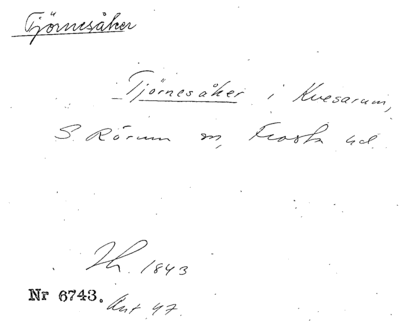 Tjörnesåker
Tjörnesåker i Kvesarum,
S Rörum sn, Frosta hd.
Th. 1843
Nr 6743. Ant 47.